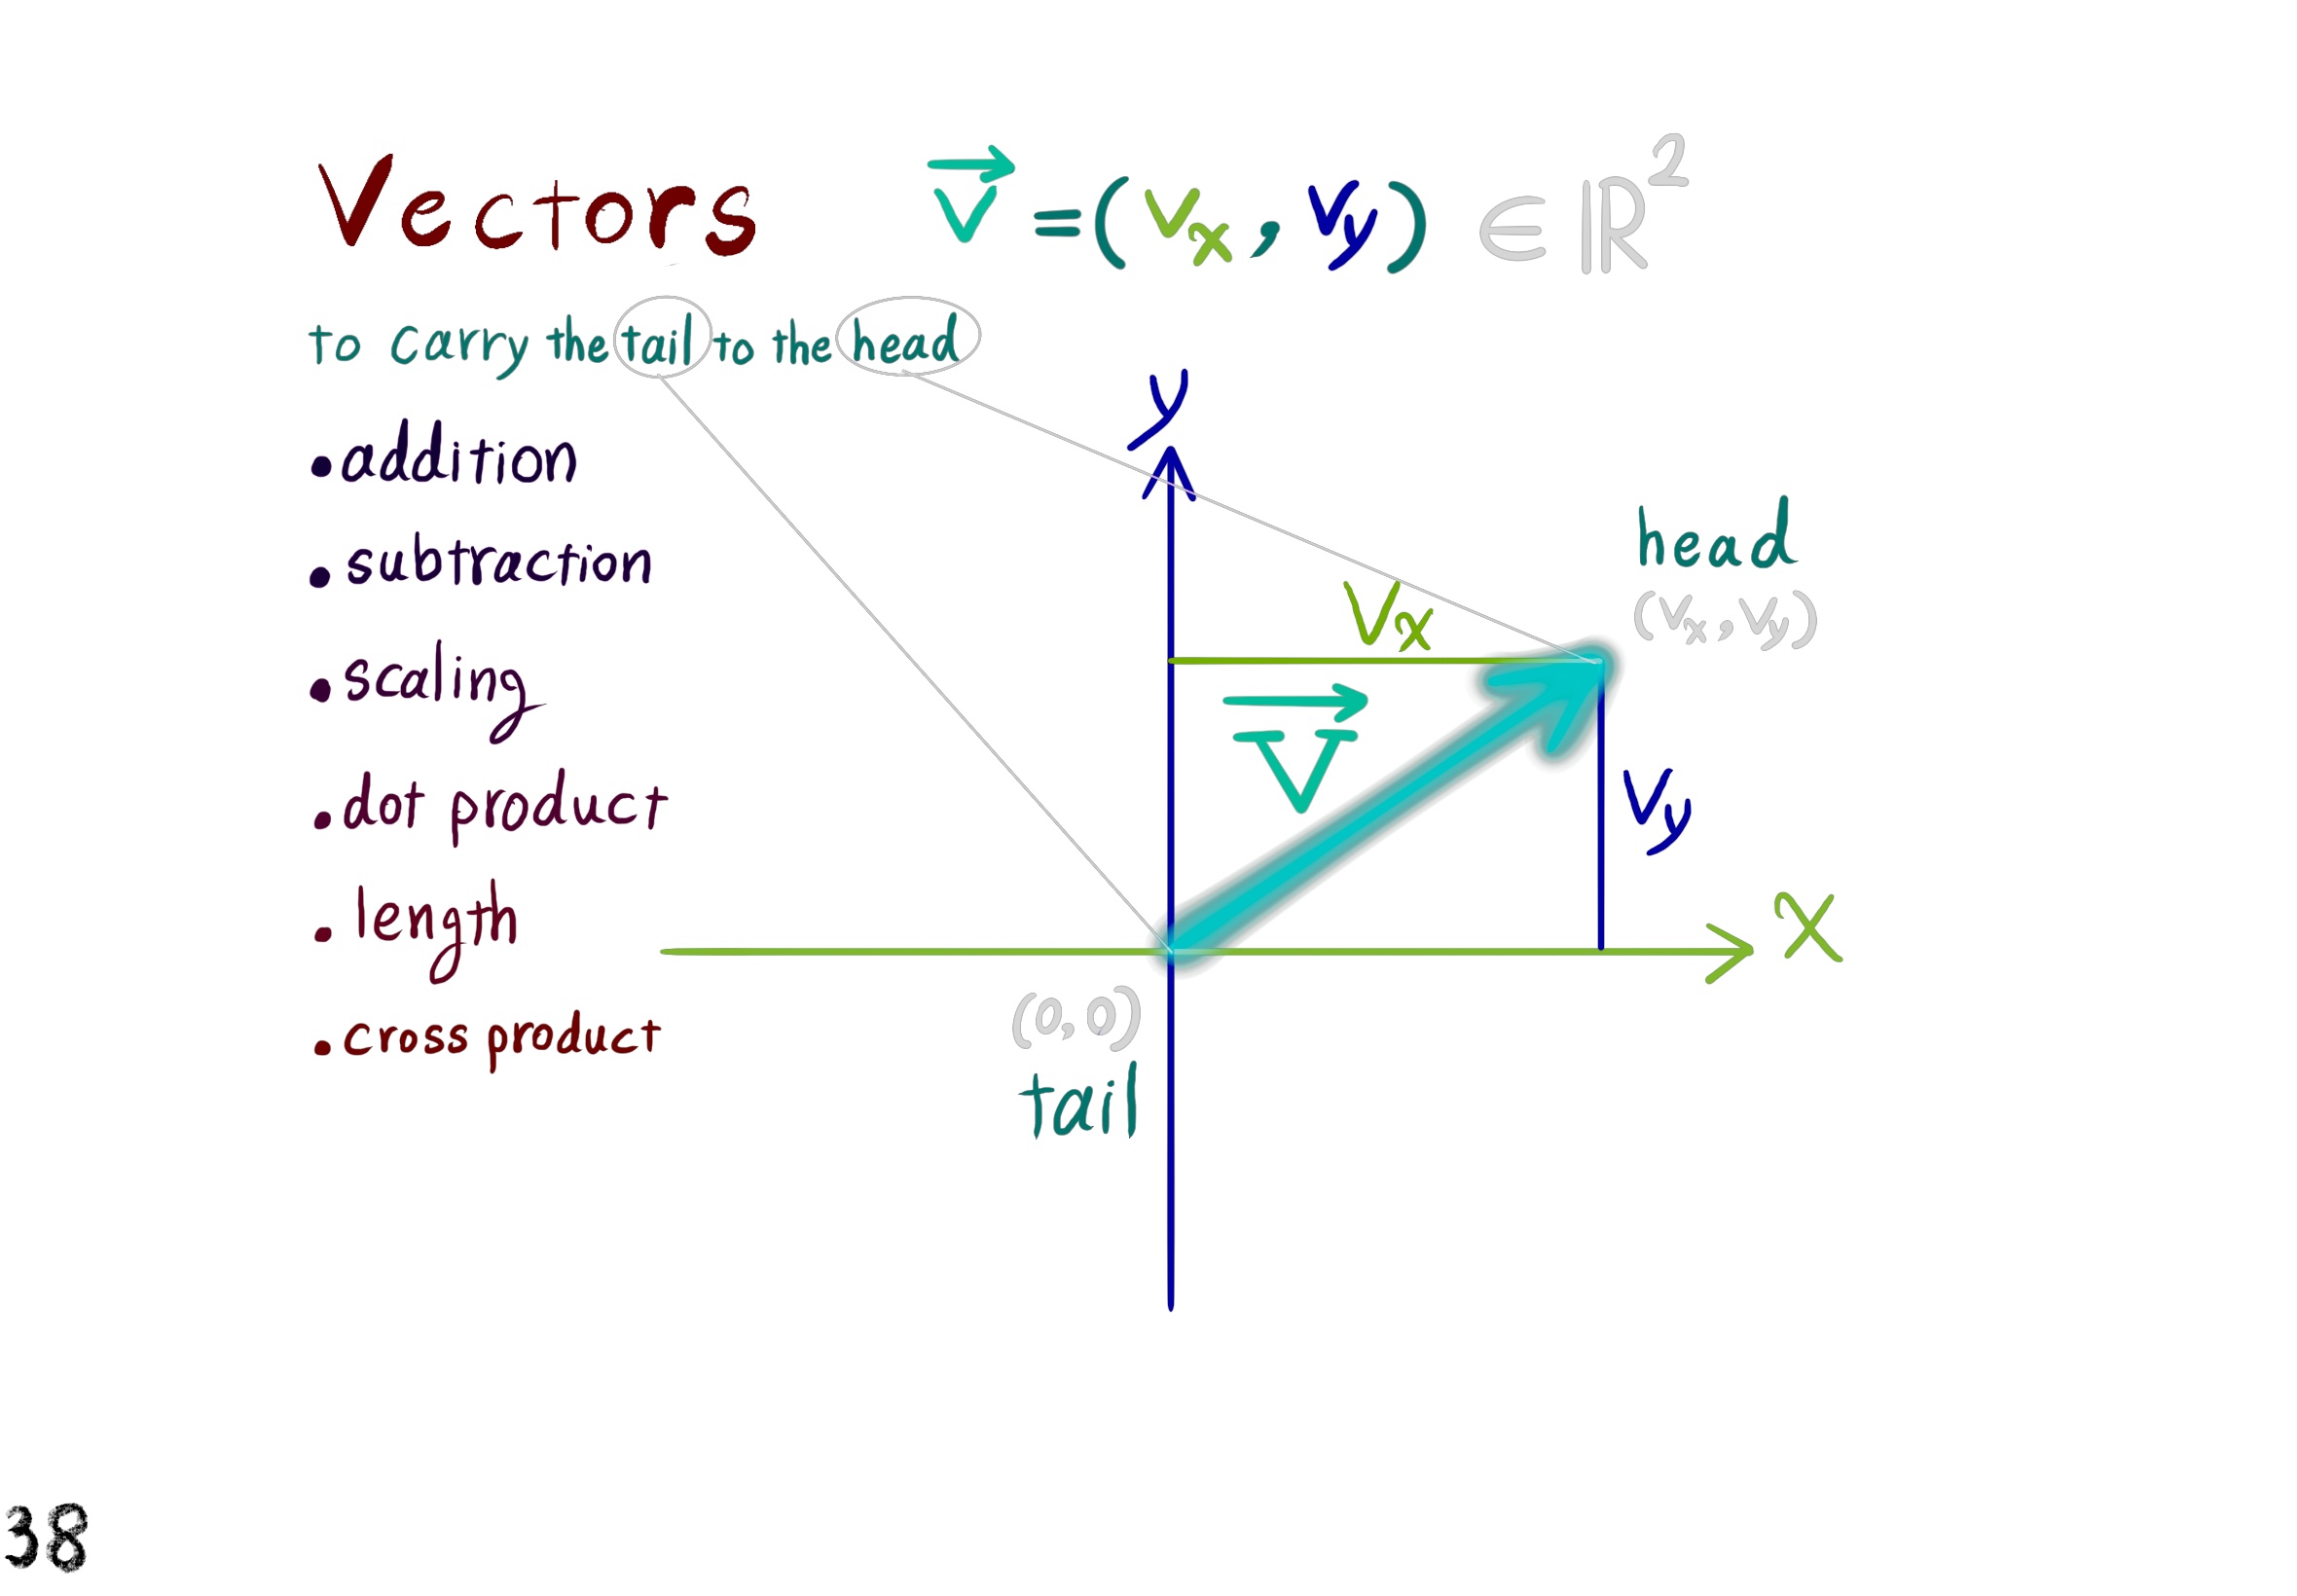 Vectors
v⃗ = (vx, vy) ∈ ℝ²
to carry the tail to the head
• addition
• subtraction
• scaling
• dot product
• length
• cross product
y
head
(vx, vy)
vx
v⃗
vy
x
(0,0)
tail
38